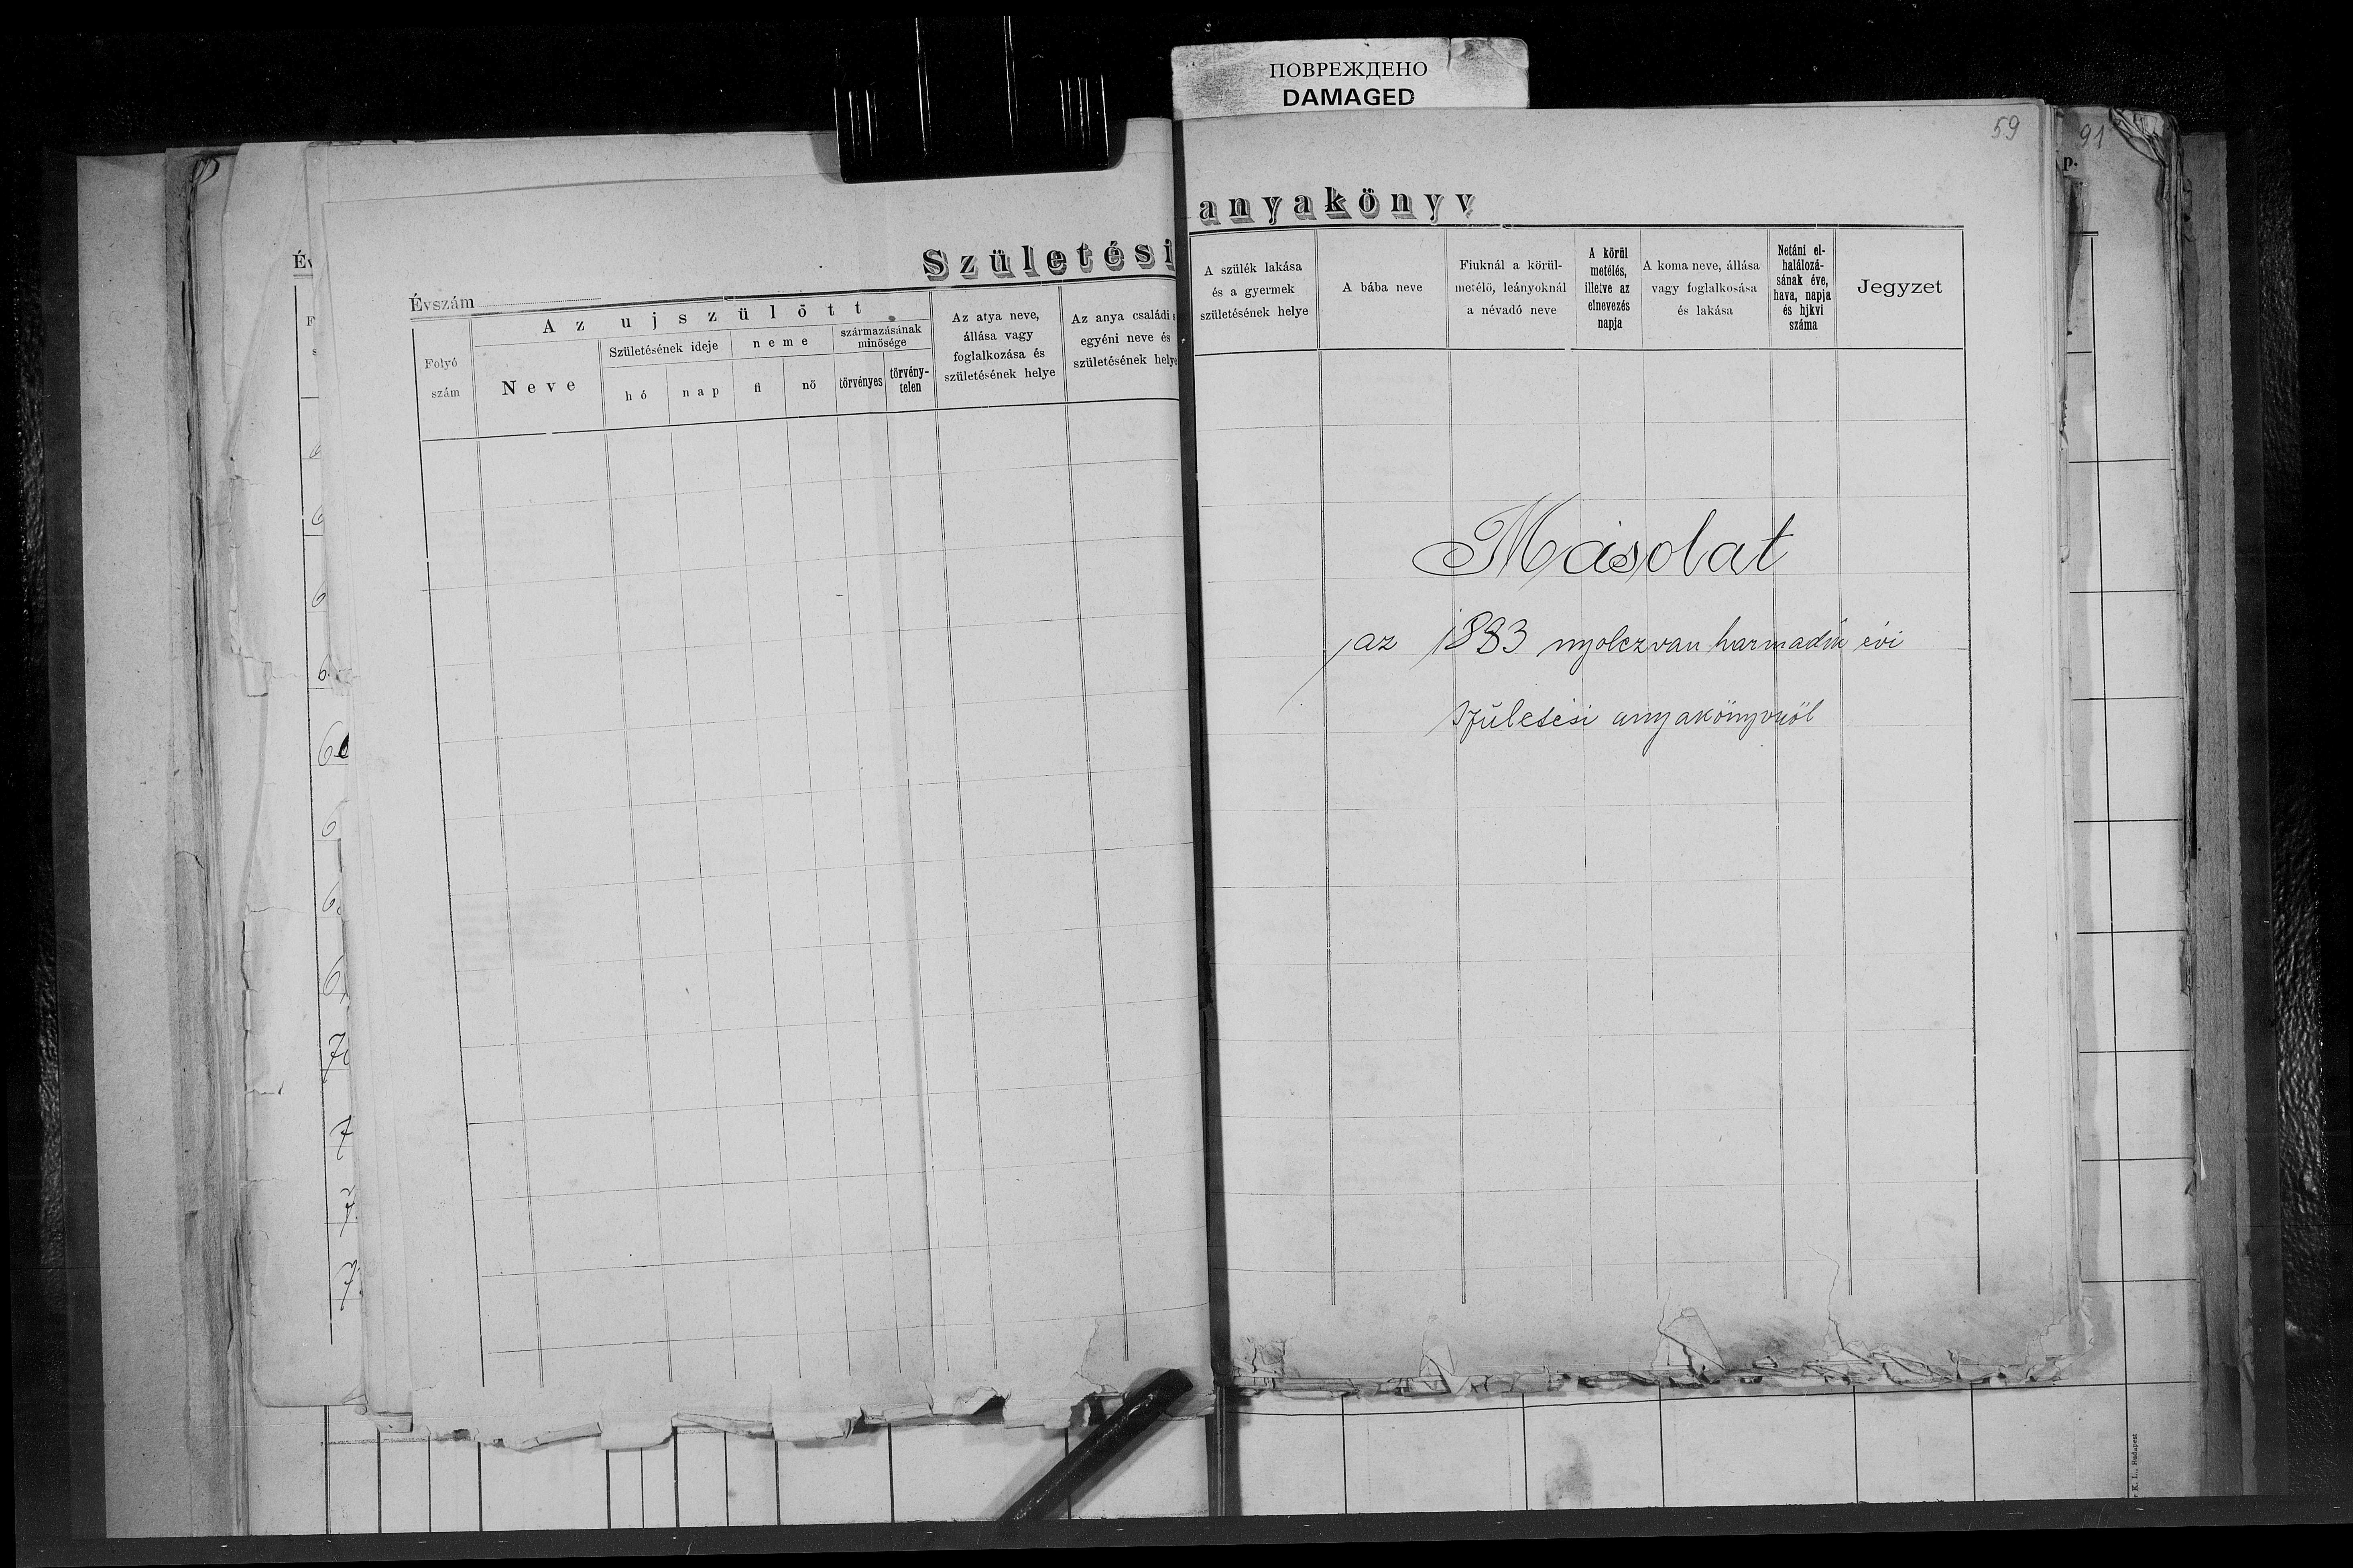 ПОВРЕЖДЕНО
DAMAGED
59
91
p.
Születési anyakönyv
Évszám
Folyó szám
Az ujszülött
Neve
Születésének ideje
hó
nap
neme
fi
nő
származásának minősége
törvényes
törvény-telen
Az atya neve,
állása vagy
foglalkozása és
születésének helye
Az anya családi s
egyéni neve és
születésének helye
A szülék lakása
és a gyermek
születésének helye
A bába neve
Fiuknál a körül-
metélő, leányoknál
a névadó neve
A körül
metélés,
illetve az
elnevezés
napja
A koma neve, állása
vagy foglalkosása
és lakása
Netáni el-
halálozá-
sának éve,
hava, napja
és hjkvi
száma
Jegyzet
Másolat
az 1883 nyolczvan harmadik évi
Születési anyakönyvről
K. L., Budapest